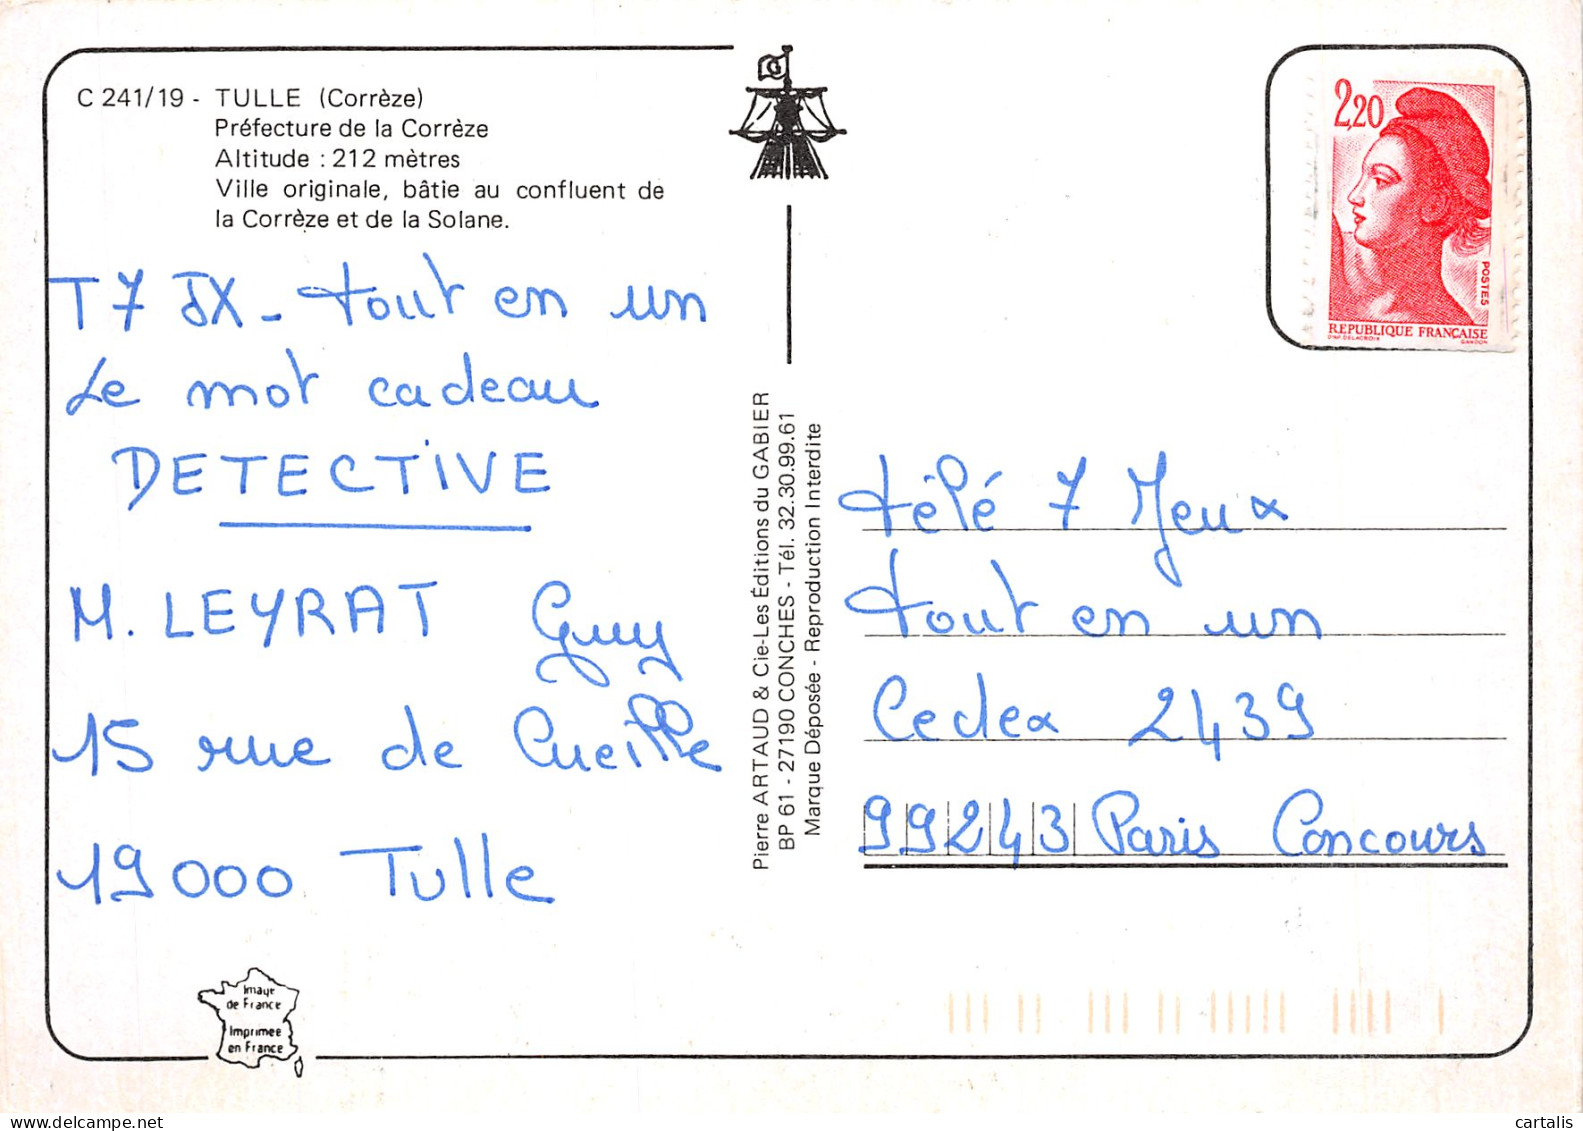 C 241/19 - TULLE (Corrèze)
Préfecture de la Corrèze
Altitude : 212 mètres
Ville originale, bâtie au confluent de
la Corrèze et de la Solane.
T7JX - tout en un
Le mot cadeau
DETECTIVE
M. LEYRAT Guy
15 rue de Cueille
19000 Tulle
Image
de France
Imprimée
en France
Pierre ARTAUD & Cie-Les Éditions du GABIER
BP 61 - 27190 CONCHES - Tél. 32.30.99.61
Marque Déposée - Reproduction Interdite
2,20
POSTES
REPUBLIQUE FRANÇAISE
D'AP. DELACROIX GANDON
télé 7 Jeux
tout en un
Cedex 2439
99243 Paris Concours
www.delcampe.net
cartalis